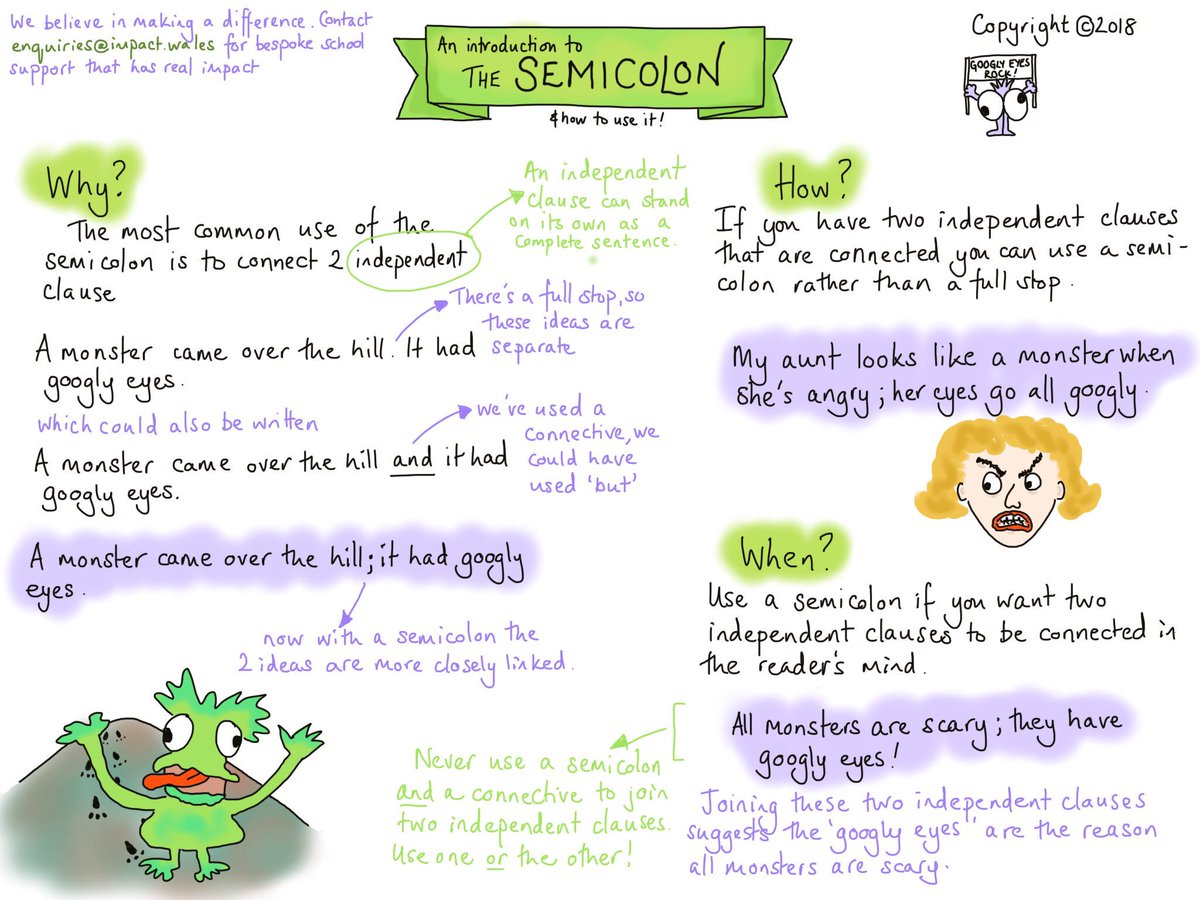 We believe in making a difference. Contact
enquiries@impact.wales for bespoke school
support that has real impact
An introduction to
THE SEMICOLON
& how to use it!
Copyright ©2018
GOOGLY EYES
ROCK!
Why?
The most common use of the
semicolon is to connect 2 independent
clause
An independent
clause can stand
on its own as a
complete sentence.
A monster came over the hill. It had
googly eyes.
There's a full stop, so
these ideas are
separate
which could also be written
A monster came over the hill and it had
googly eyes.
we've used a
connective, we
could have
used 'but'
A monster came over the hill; it had googly
eyes.
now with a semicolon the
2 ideas are more closely linked.
How?
If you have two independent clauses
that are connected you can use a semi-
colon rather than a full stop.
My aunt looks like a monster when
she's angry; her eyes go all googly.
When?
Use a semicolon if you want two
independent clauses to be connected in
the reader's mind.
All monsters are scary; they have
googly eyes!
Never use a semicolon
and a connective to join
two independent clauses.
Use one or the other!
Joining these two independent clauses
suggests the 'googly eyes' are the reason
all monsters are scary.